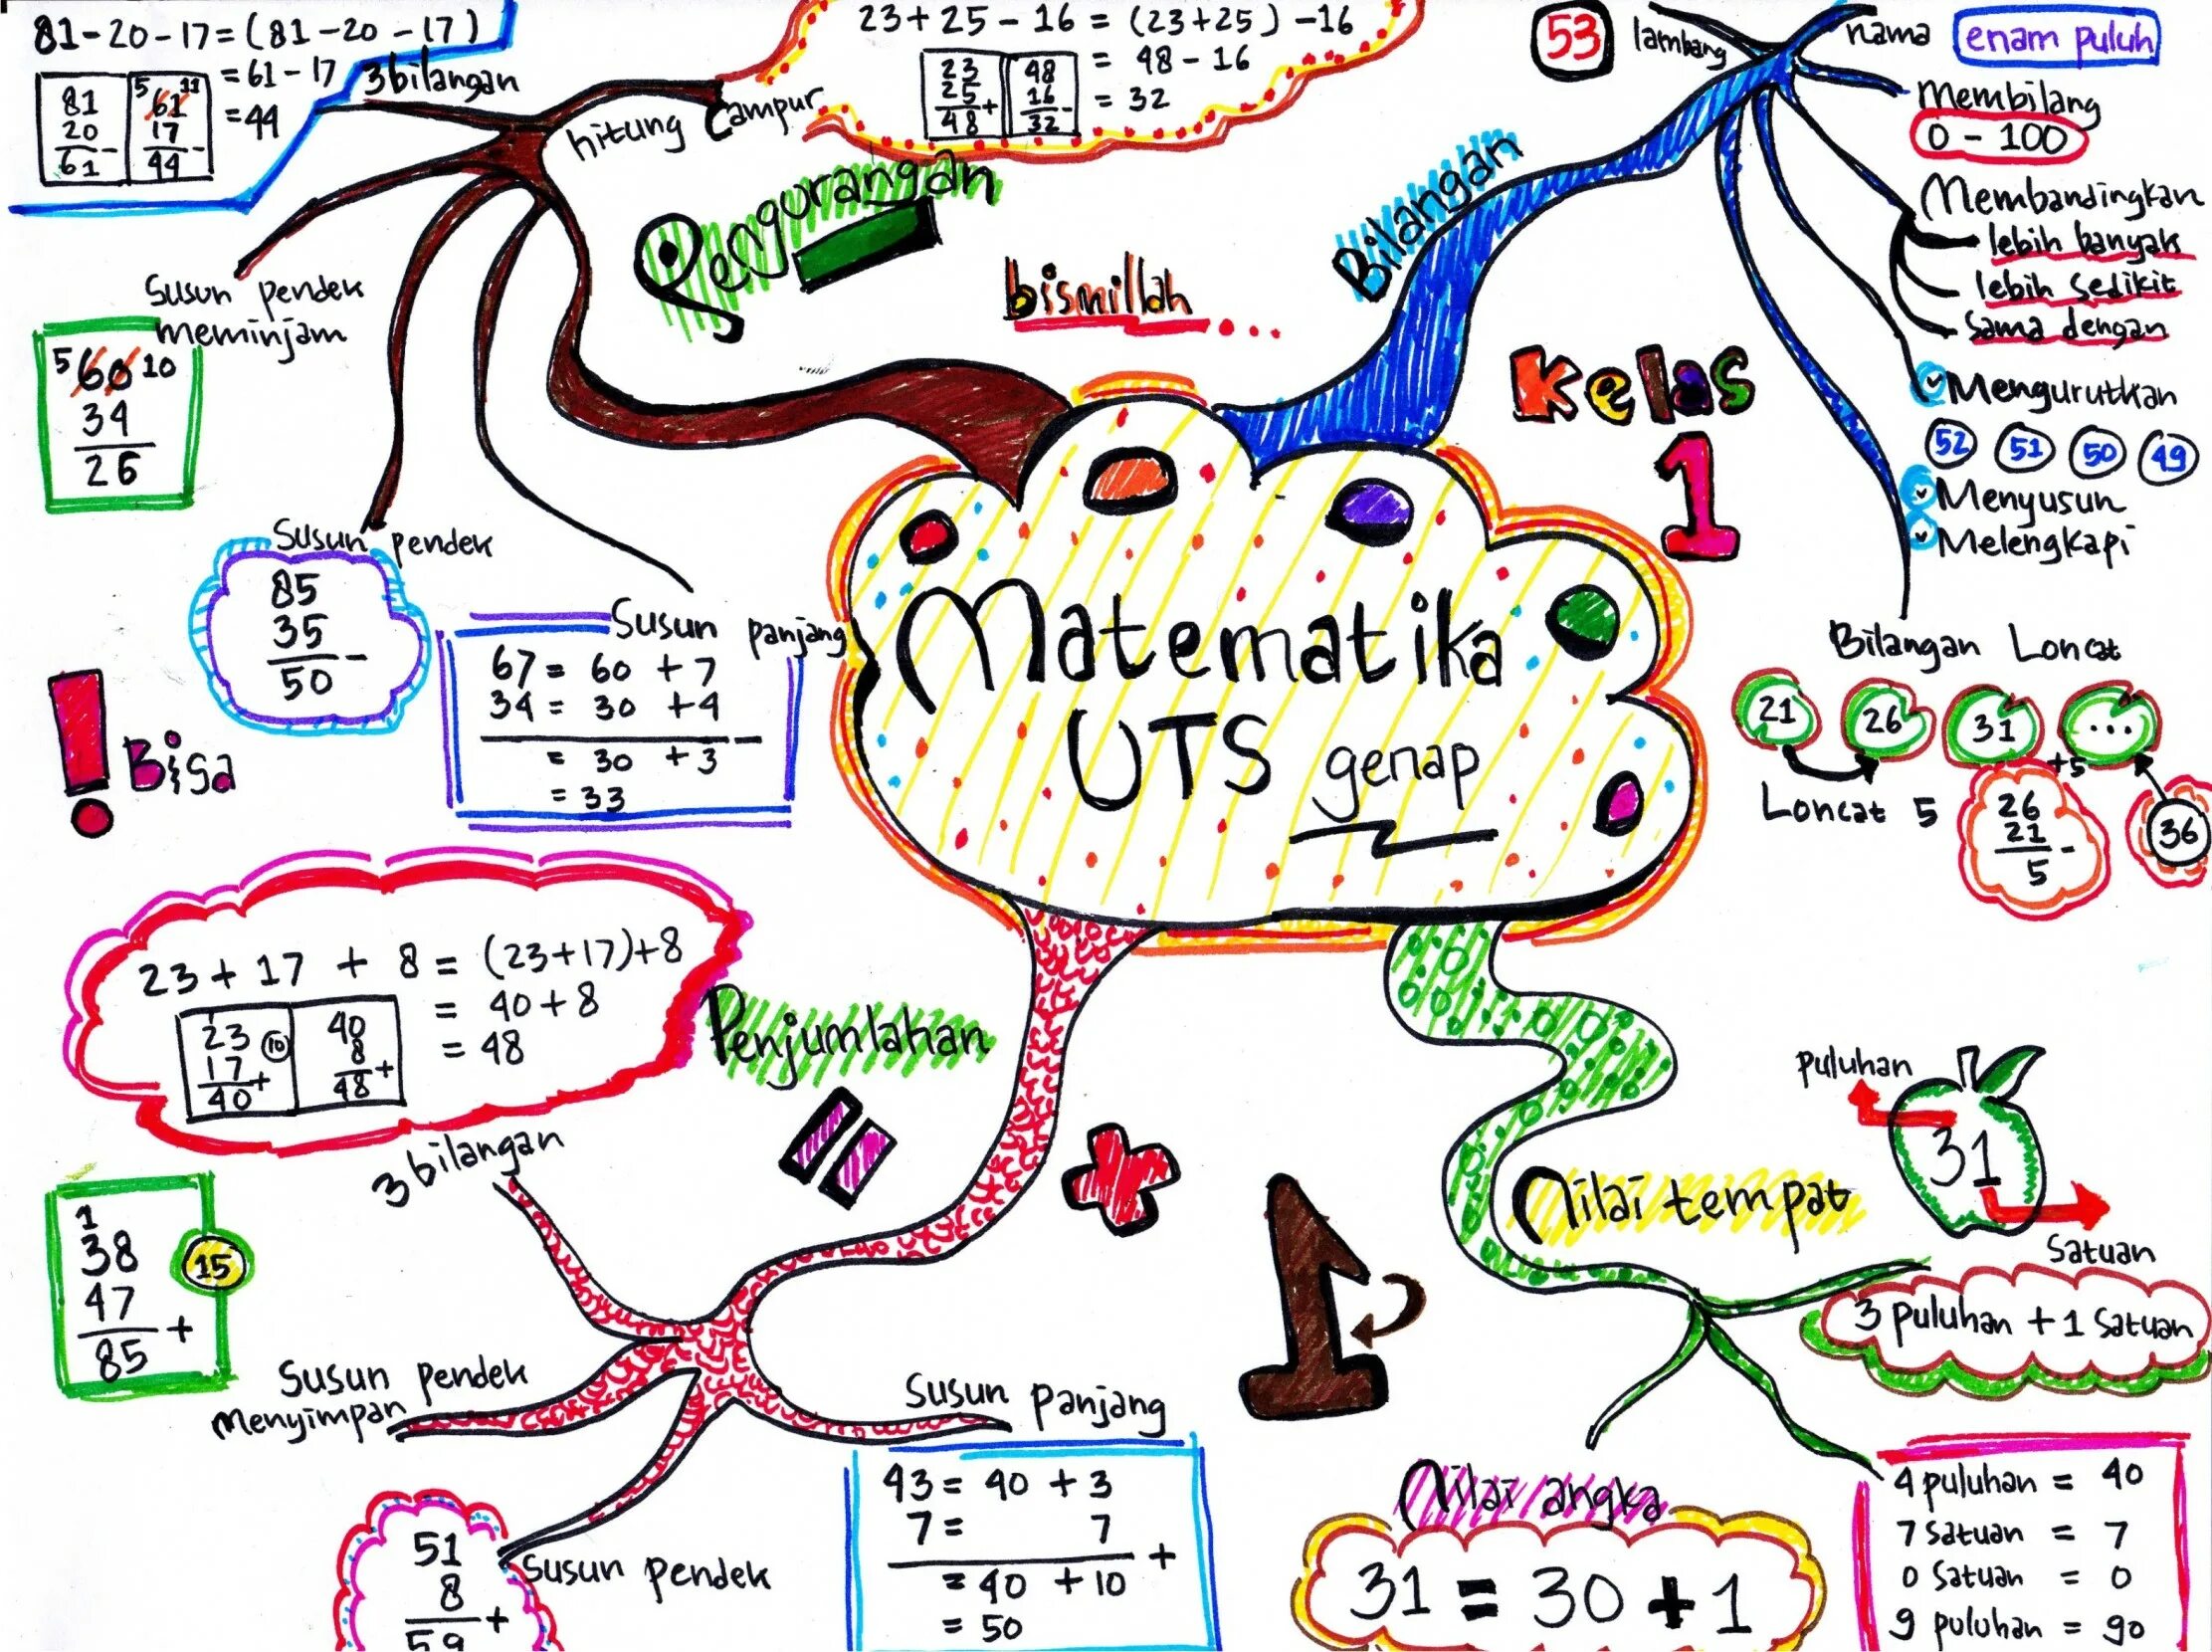 81-20-17=(81-20-17)
=61-17
=44
81
20
61 -
5 11
61
17
44 -
3 bilangan
hitung campur
23+25-16 = (23+25)-16
= 48-16
= 32
23
25
48 +
48
16
32 -
Pengurangan
Susun pendek
meminjam
5 60 10
34
26
Susun pendek
85
35
50 -
Susun panjang
67 = 60 + 7
34 = 30 + 4
-
= 30 + 3
= 33
bismillah...
Bilangan
53
lambang
nama
enam puluh
Membilang
0 - 100
Membandingkan
lebih banyak
lebih sedikit
sama dengan
Mengurutkan
52 51 50 49
Menyusun
Melengkapi
Bilangan Loncat
21 26 31 ...
+5
Loncat 5
26
21
5 -
36
Kelas
1
Matematika
UTS genap
! Bisa
23+17 + 8 = (23+17)+8
= 40+8
= 48
1
23 10
17
40 +
40
8
48 +
3 bilangan
Penjumlahan
=
+
1
38
47
85 +
15
Susun pendek
menyimpan
Susun pendek
51
8
59 +
Susun panjang
43 = 40 + 3
7 = 7
+
= 40 + 10
= 50
1
Nilai tempat
puluhan
31
Satuan
3 puluhan + 1 Satuan
Nilai angka
31 = 30 + 1
4 puluhan = 40
7 Satuan = 7
0 Satuan = 0
9 puluhan = 90